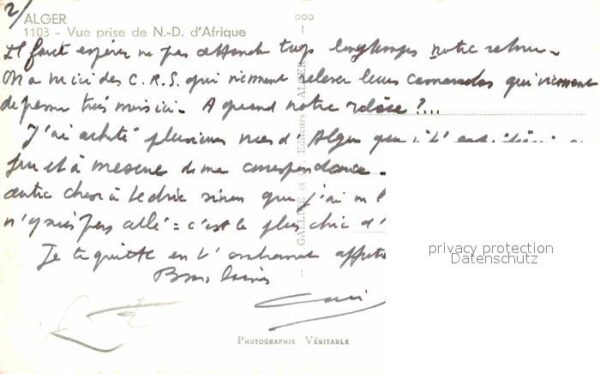 2/
ALGER
1103 - Vue prise de N.-D. d'Afrique
Il faut espérer ne pas attendre trop longtemps notre retour.
On a ici des C.R.S. qui viennent relever leurs camarades qui viennent
de passer trois mois ici. A quand notre relève ?...
J'ai acheté plusieurs vues d'Alger que
fur et à mesure de ma correspondance.
autre chose à te dire sinon que j'ai
n'y suis pas allé = c'est le plus chic d'
Je te quitte en t'
Bons baisers
GALLIAE et Editeurs ALGER
PHOTOGRAPHIE VÉRITABLE
privacy protection
Datenschutz